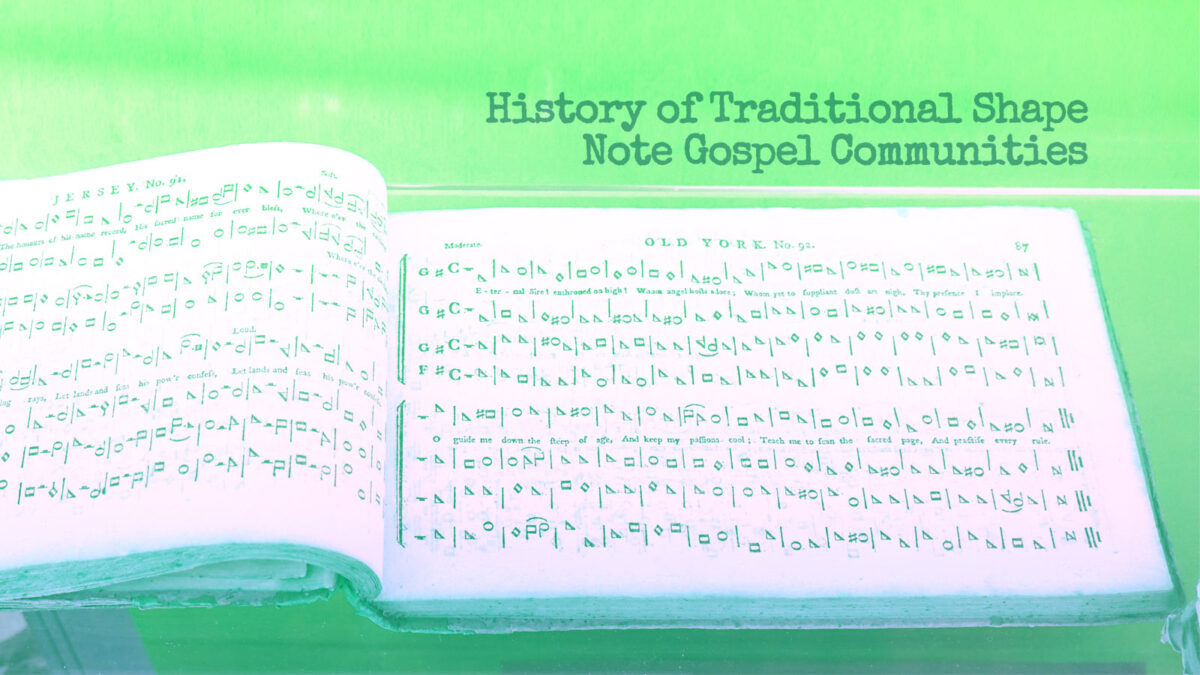 History of Traditional Shape
Note Gospel Communities
JERSEY. No. 91.
Soft.
The honours of his name record, His sacred name for ever bless, Where e'er the
Where e'er the
Loud.
rays, Let lands and seas his pow'r confess, Let lands and seas his pow'r
Moderate.
OLD YORK. No. 92.
87
G
E - ter - nal Sire! enthroned on high! Whom angel hosts adore; Whom yet to suppliant dust art nigh, Thy presence I implore.
G
G
F
O guide me down the steep of age, And keep my passions cool; Teach me to scan the sacred page, And practise every rule.